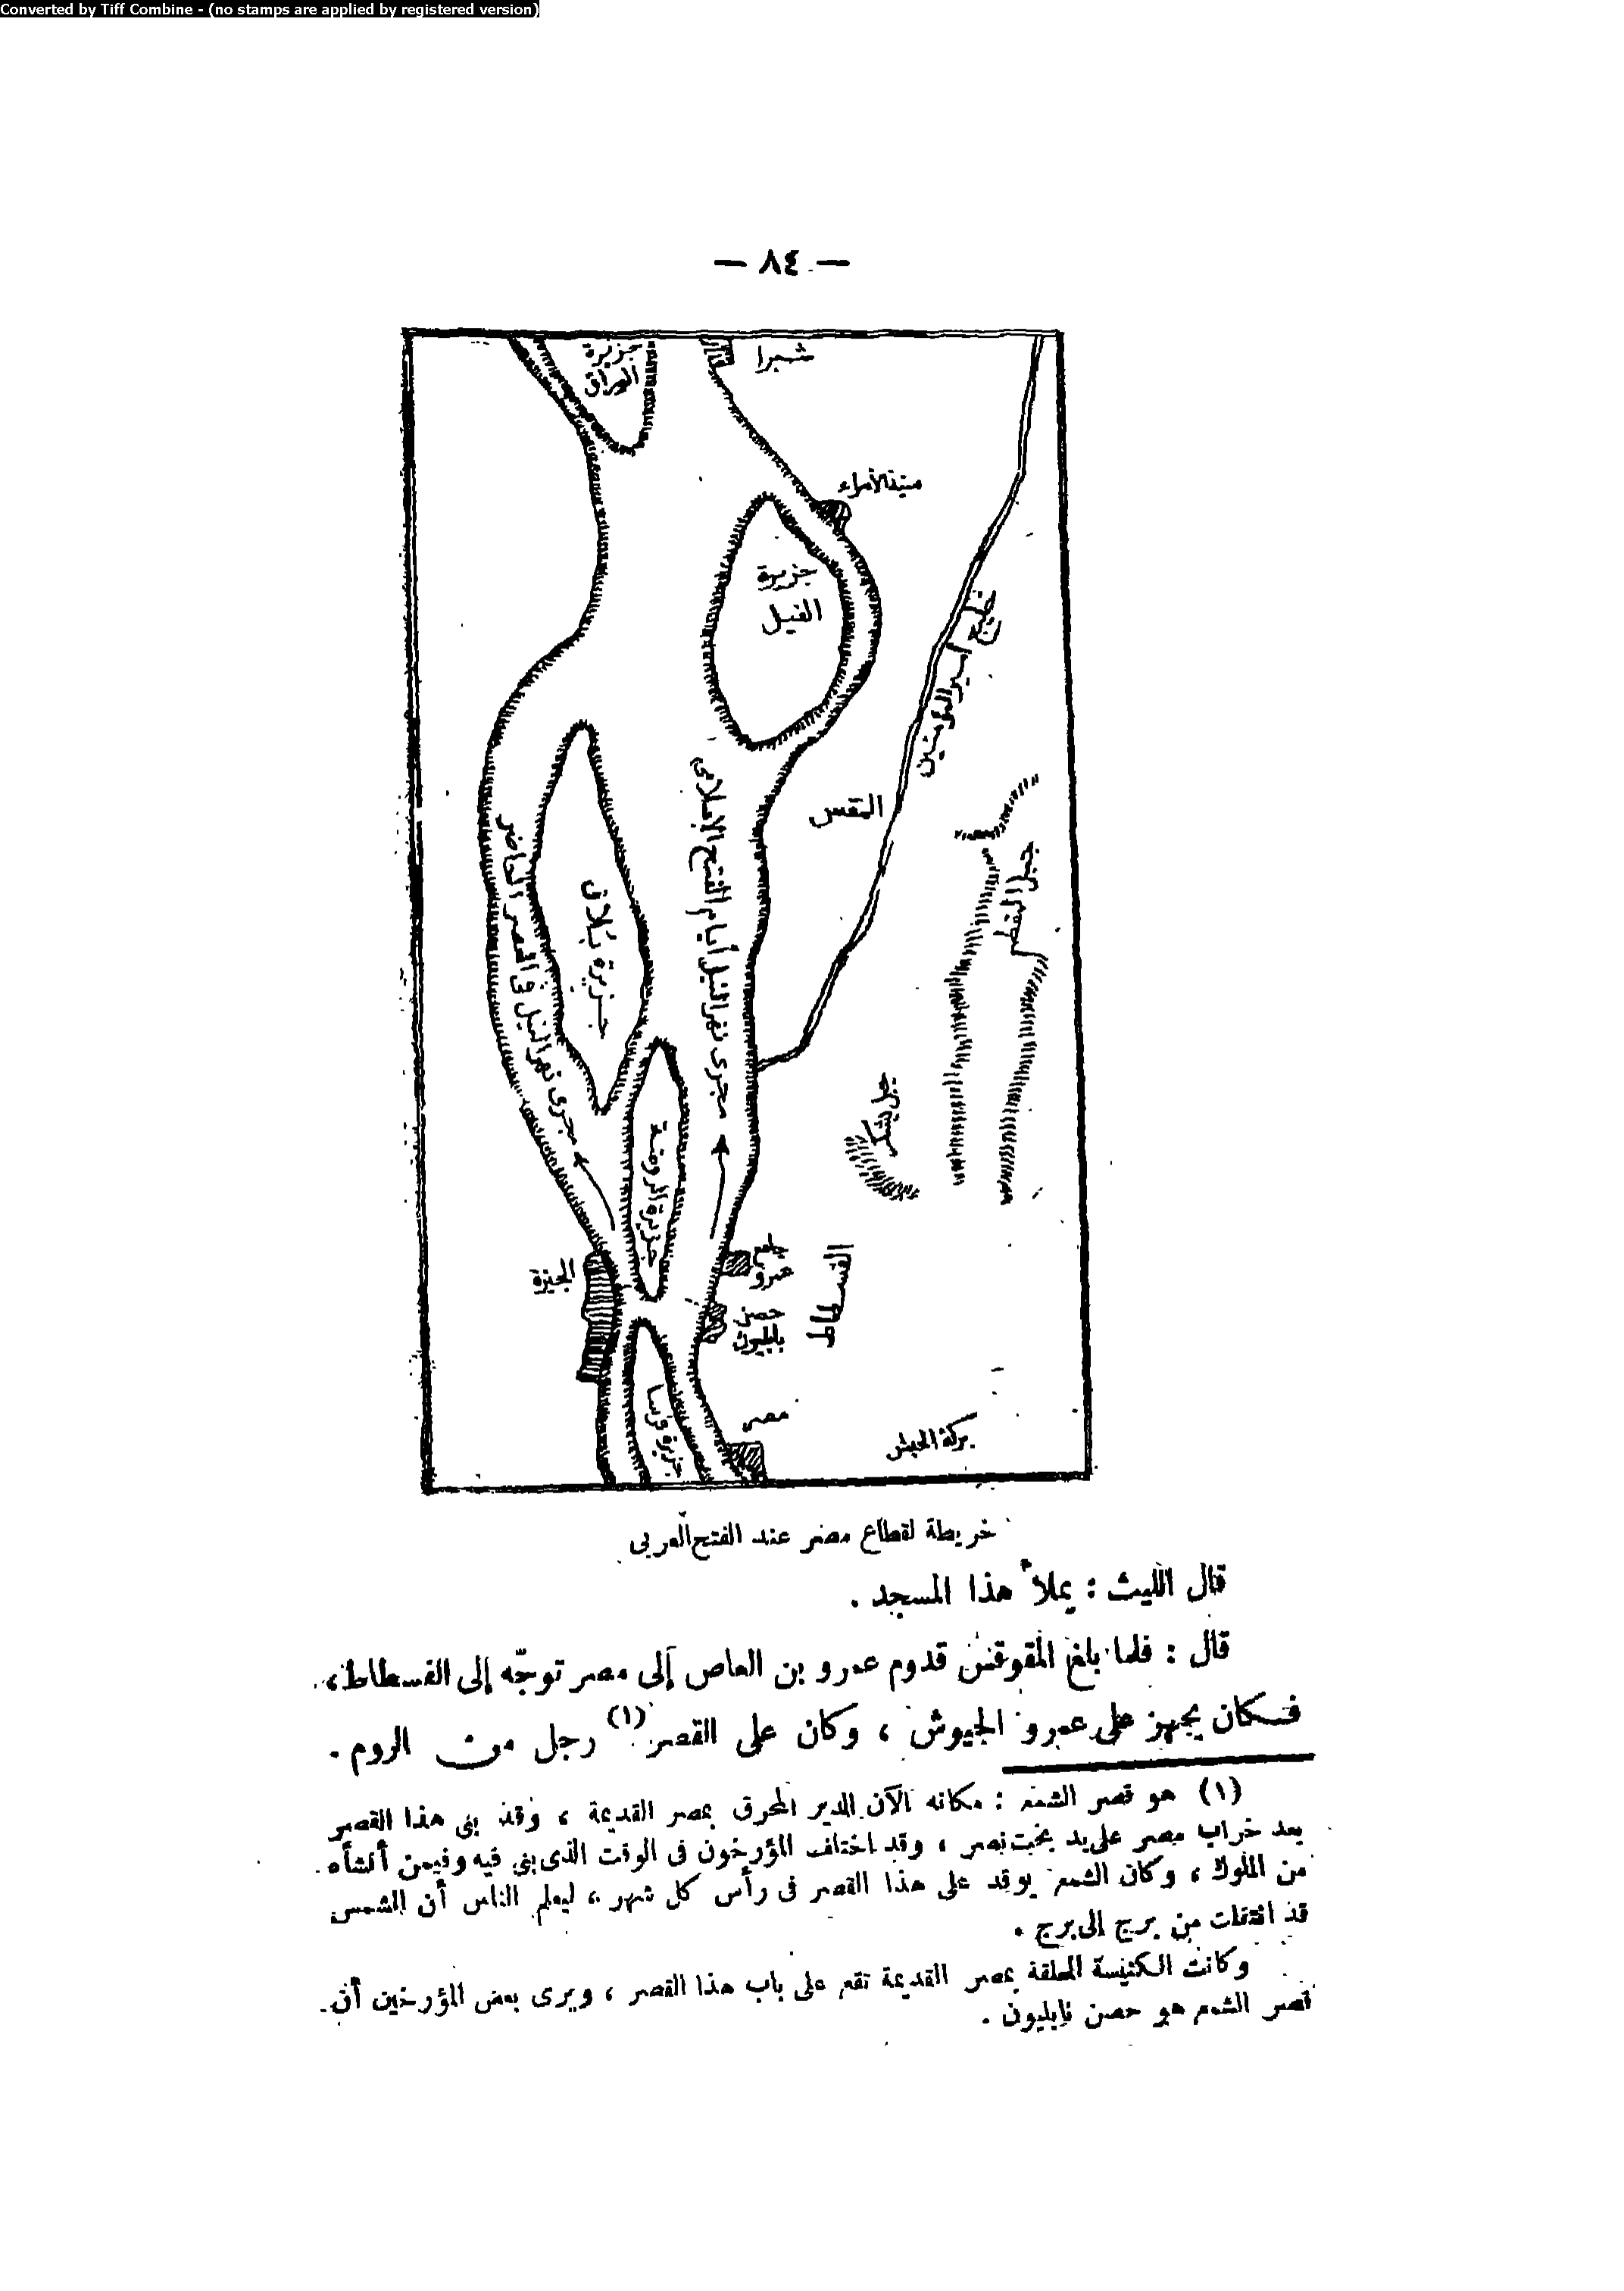 Converted by Tiff Combine - (no stamps are applied by registered version)
— ٨٤ —
جزيرة
الوراق
شبرا
منية الأمراء
جزيرة
الفيل
خليج أمير المؤمنين
المقس
جبل المقطم
مجرى نهر النيل أيام الفتح الإسلامى
جزيرة بلاق
مجرى نهر النيل فى العصر الحاضر
جبل يشكر
جزيرة الروضة
جامع
عمرو
الفسطاط
الجيزة
حصن
بابليون
مصر
بركة الحبش
خريطة لقطاع مصر عند الفتح العربى
قال الليث : يملأ هذا المسجد .
قال : فلما بلغ المقوقس قدوم عمرو بن العاص إلى مصر توجّه إلى الفسطاط ،
فكان يجهز على عمرو الجيوش ، وكان على القصر (١) رجل من الروم .
(١) هو قصر الشمع : مكانه الآن الدير المحرق بمصر القديمة ، وقد بنى هذا القصر
بعد خراب مصر على يد بختنصر ، وقد اختلف المؤرخون فى الوقت الذى بنى فيه وفيمن أنشأه
من الملوك ، وكان الشمع يوقد على هذا القصر فى رأس كل شهر ، ليعلم الناس أن الشمس
قد انتقلت من برج إلى برج .
وكانت الكنيسة المعلقة بمصر القديمة تقع على باب هذا القصر ، ويرى بعض المؤرخين أن
قصر الشمع هو حصن بابليون .